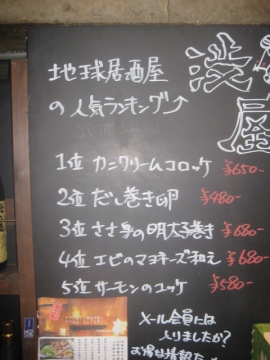 地球居酒屋
の人気ランキング↑
1位 カニクリームコロッケ ¥650-
2位 だし巻き卵 ¥480-
3位 ささ身の明太子巻き ¥680-
4位 エビのマヨネーズ和え ¥680-
5位 サーモンのユッケ ¥580-
メール会員には
入りましたか?
お得な情報を
屋